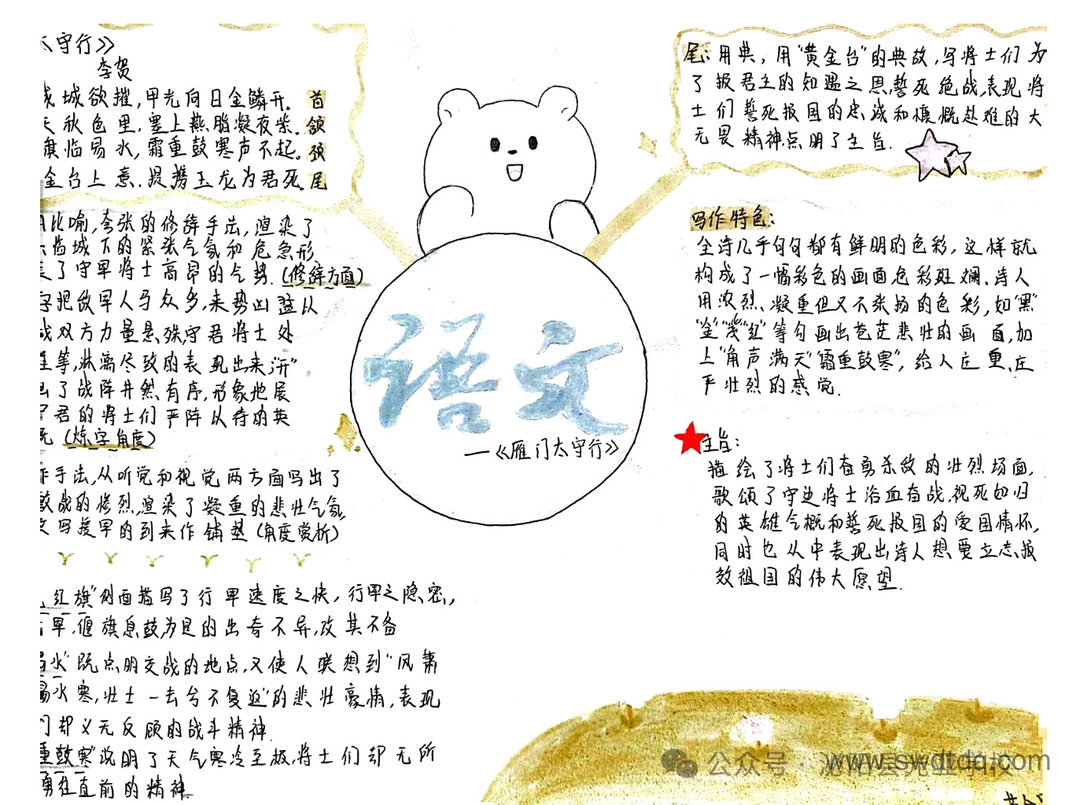 太守行》
李贺
城欲摧,甲光向日金鳞开。 首
秋色里,塞上燕脂凝夜紫。 颔
旗临易水,霜重鼓寒声不起。 颈
金台上意,提携玉龙为君死 尾
用比喻,夸张的修辞手法,渲染了
城下的紧张气氛和危急形
了守军将士高昂的气势.(修辞方面)
字把敌军人马众多,来势凶猛以
战双方力量悬殊,守军将士处
等,淋漓尽致的表现出来."开"
出了战阵井然有序,形象地展
了军的将士们严阵以待的英
(炼字角度)
手法,从听觉和视觉两方面写出了
激战的惨烈,渲染了凝重的悲壮气氛
文写援军的到来作铺垫(角度赏析)
红旗"侧面描写了行军速度之快,行军之隐密,
军,偃旗息鼓,为的出奇不异,攻其不备
易水"既点明交战的地点,又使人联想到"风萧
易水寒,壮士一去兮不复返"的悲壮豪情,表现
们却义无反顾的战斗精神.
重鼓寒"说明了天气寒冷至极,将士们却无所
勇往直前的精神
语文
—《雁门太守行》
尾:用典,用"黄金台"的典故,写将士们为
了报君主的知遇之恩,誓死绝战,表现将
士们誓死报国的忠诚和慷慨赴难的大
无畏精神,点明了主旨.
写作特色:
全诗几乎句句都有鲜明的色彩,这样就
构成了一幅彩色的画面,色彩斑斓.诗人
用浓烈、凝重但又不张扬的色彩,如"黑"
"金""紫""红"等勾画出苍茫悲壮的画面,加
上"角声满天""霜重鼓寒",给人庄重、庄
严壮烈的感觉.
主旨:
描绘了将士们奋勇杀敌的壮烈场面,
歌颂了守边将士浴血奋战,视死如归
的英雄气概和誓死报国的爱国情怀,
同时也从中表现出诗人想要立志报
效祖国的伟大愿望.
公众号·
www.swdtdq.com